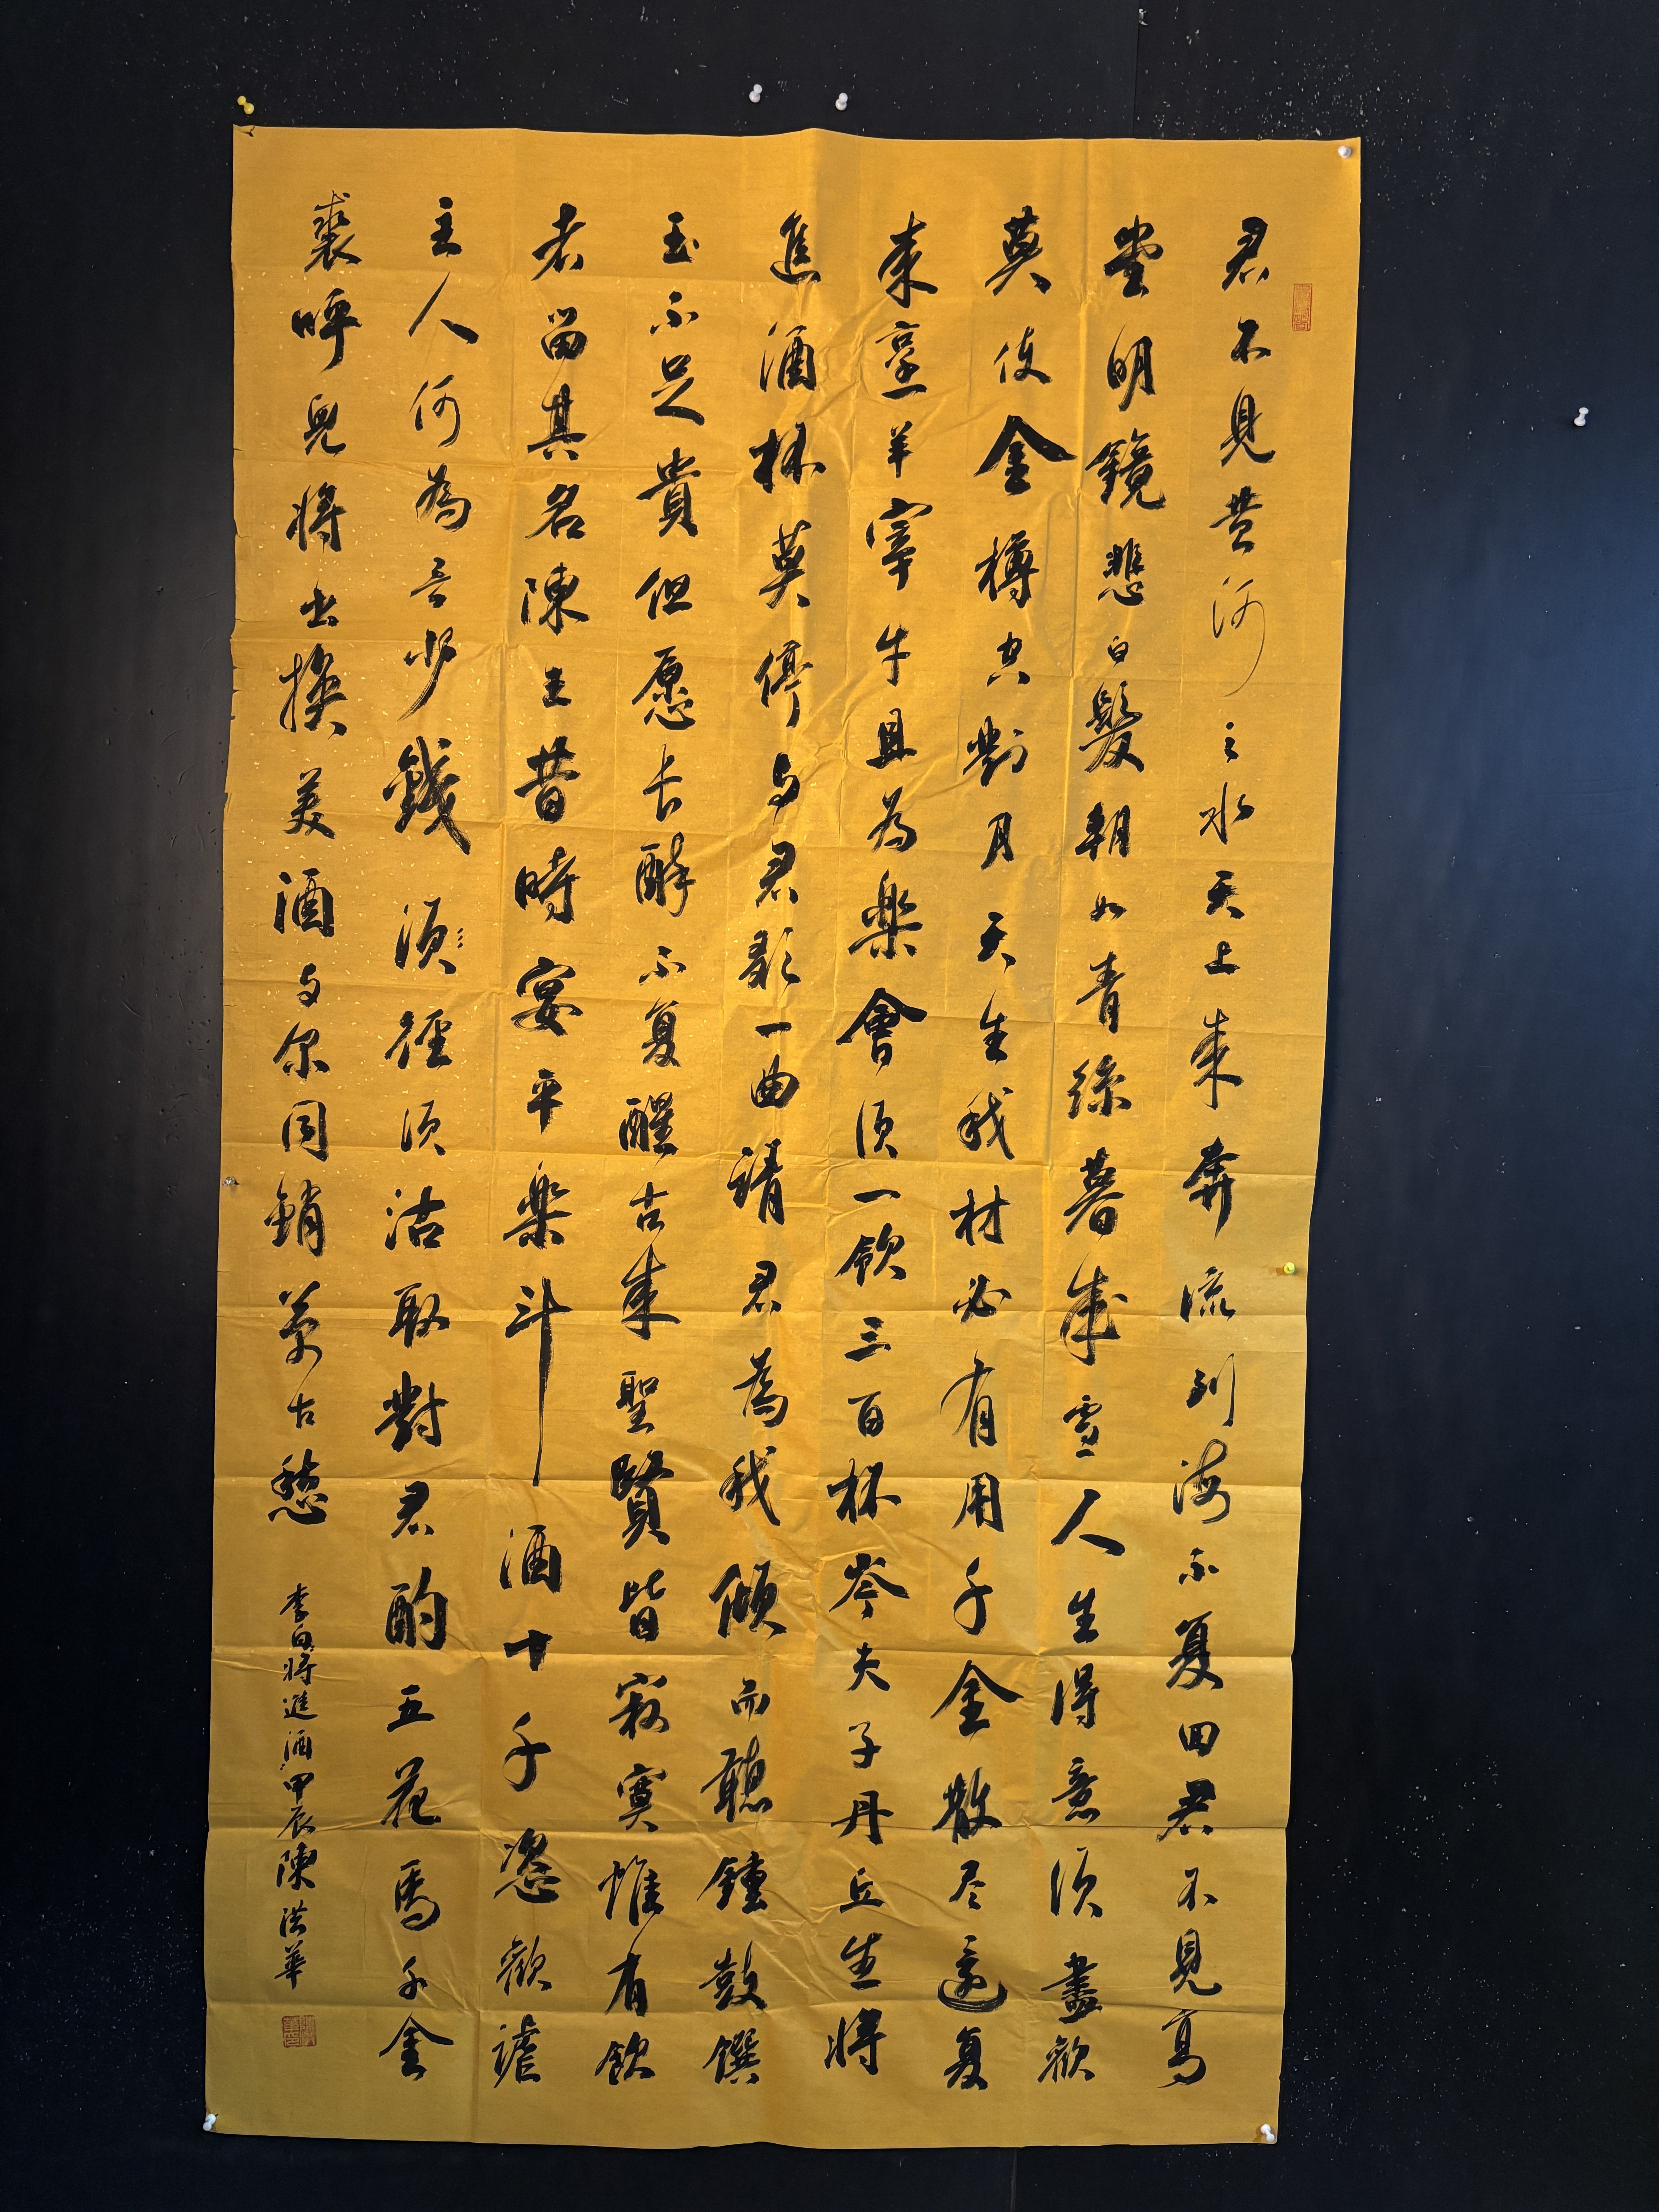 君不見黄河之水天上来奔流到海不复回君不見高
堂明鏡悲白髮朝如青絲暮成雪人生得意須盡歡
莫使金樽空對月天生我材必有用千金散尽還复
来烹羊宰牛且為楽會須一飲三百杯岑夫子丹丘生将
進酒杯莫停与君歌一曲請君為我傾而聽鐘鼓饌
玉不足貴但愿长醉不复醒古来聖賢皆寂寞惟有飲
者留其名陳王昔時宴平楽斗酒十千恣歡謔
主人何為言少錢須徑須沽取對君酌五花馬千金
裘呼兒将出換美酒与尔同銷萬古愁
李白将進酒甲辰陳洪華